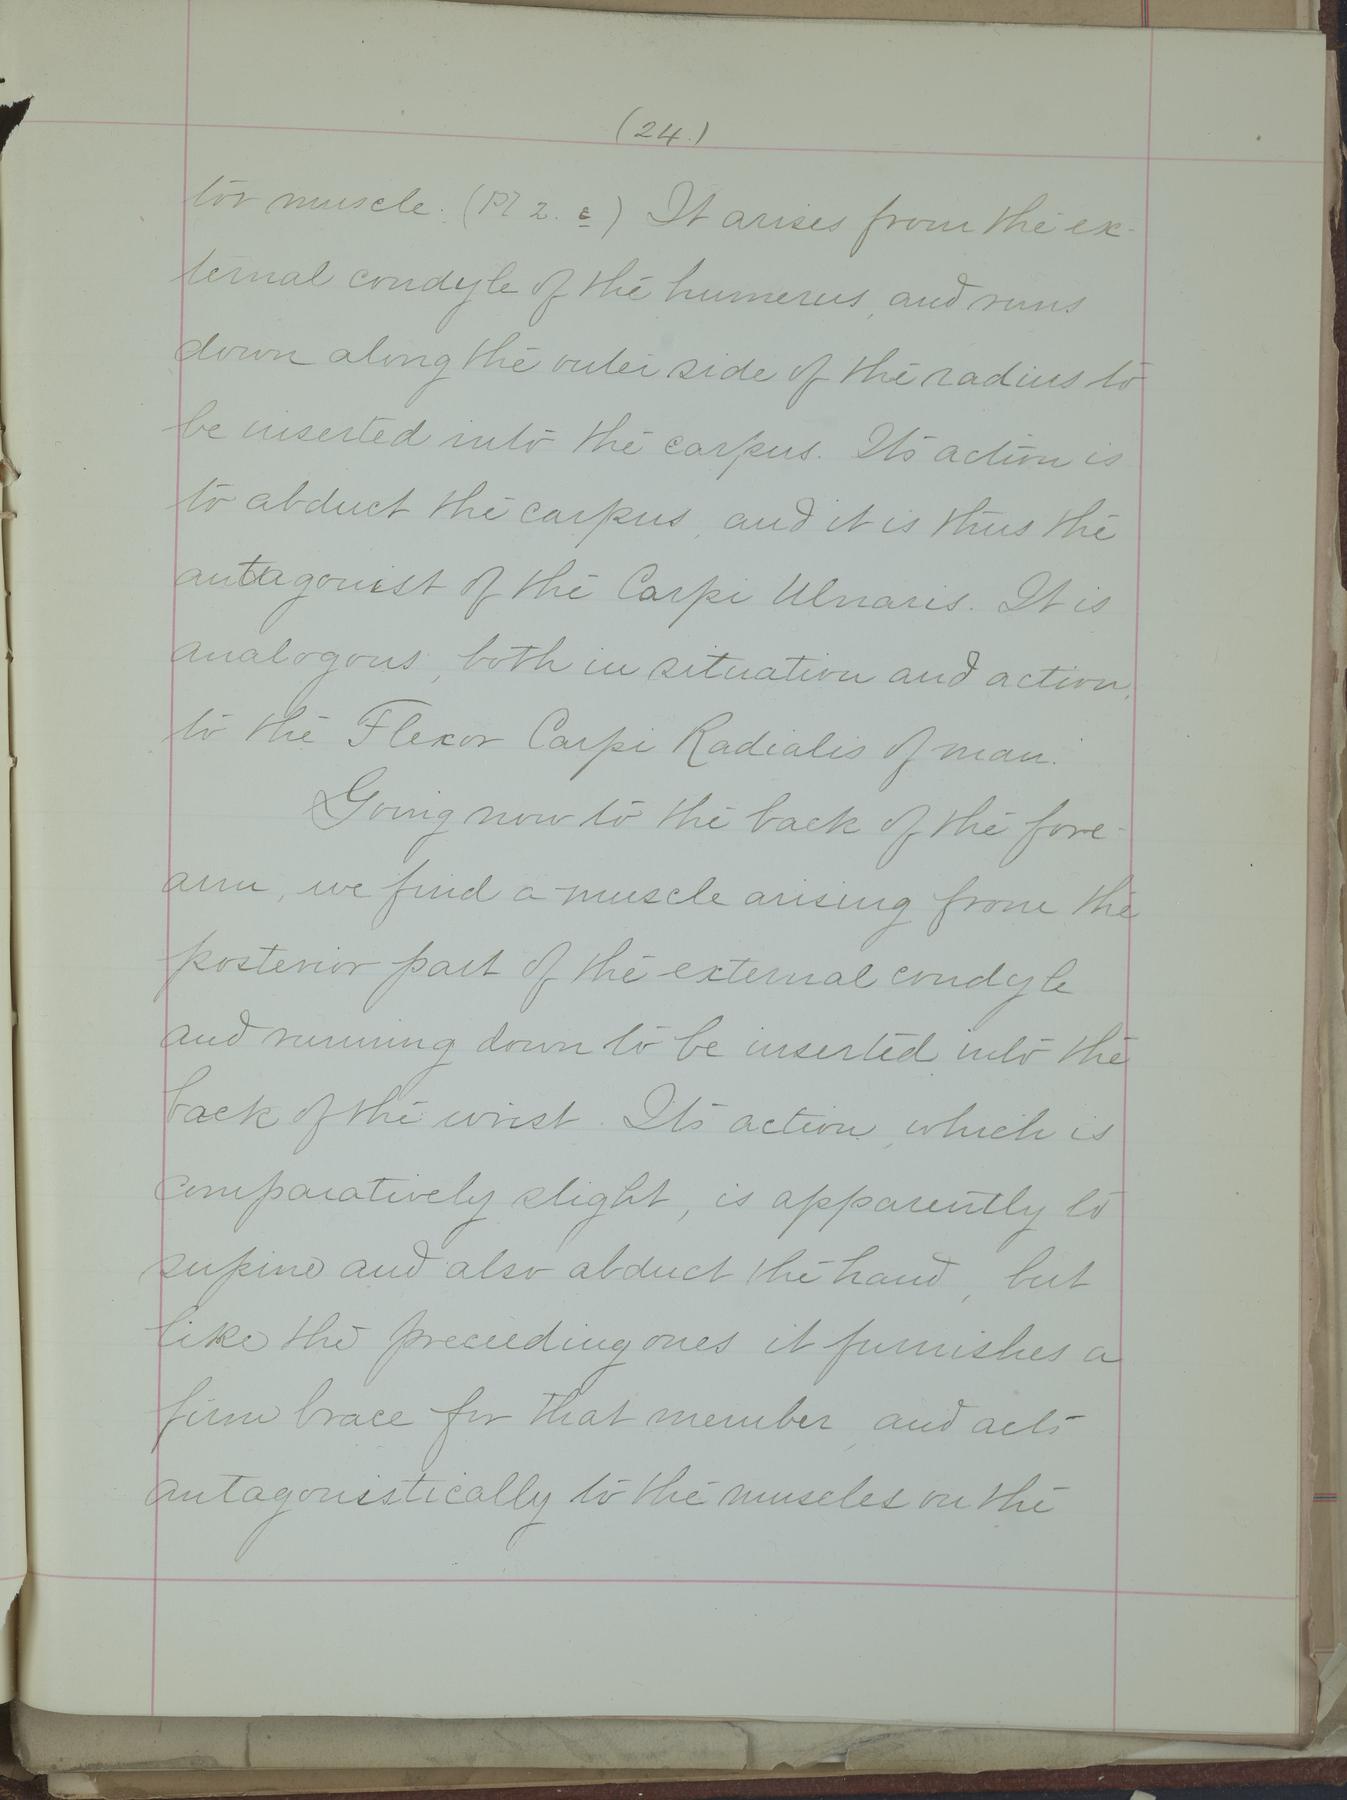 (24.)
tor muscle. (Pl 2. c) It arises from the ex-
ternal condyle of the humerus, and runs
down along the outer side of the radius to
be inserted into the carpus. Its action is
to abduct the carpus, and it is thus the
antagonist of the Carpi Ulnaris. It is
analogous, both in situation and action,
to the Flexor Carpi Radialis of man.
Going now to the back of the fore-
arm, we find a muscle arising from the
posterior part of the external condyle
and running down to be inserted into the
back of the wrist. Its action, which is
comparatively slight, is apparently to
supine and also abduct the hand, but
like the preceeding ones it furnishes a
firm brace for that member, and acts
antagonistically to the muscles on the